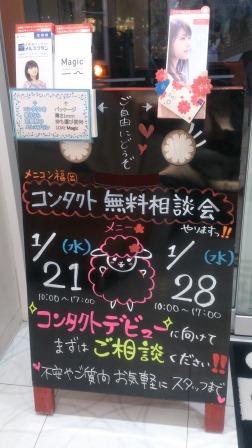 メルスプラン
Magic
ご自由にどうぞ
メニコン福岡
コンタクト 無料相談会
やりますっ!!
メニー
1/21 (水)
10:00〜17:00
1/28 (水)
10:00〜17:00
コンタクトデビューに向けて
まずはご相談ください!!
不安やご質問 お気軽に スタッフまで